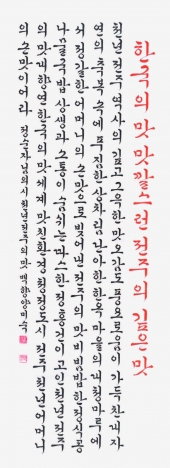 한국의 맛 맛깔스런 전주의 깊은 맛
천년 전주 역사의 깊고 그윽한 맛 오감도 풍요로움이 가득 찬 대자
연의 축복 속에 푸짐한 상차림 한옥마을의 대청마루에
서 정갈한 어머니의 손맛으로 빚어낸 전주의 맛 비빔밥 한정식 콩
나물국밥 상생과 소통이 숨쉬는 따스한 고인 천년 전주
의 맛 대향연 한국의 맛 세계 맛 친환경 청정도시 전주 천년 어머니
의 손맛이어라 천년 전주의 맛 양미숙